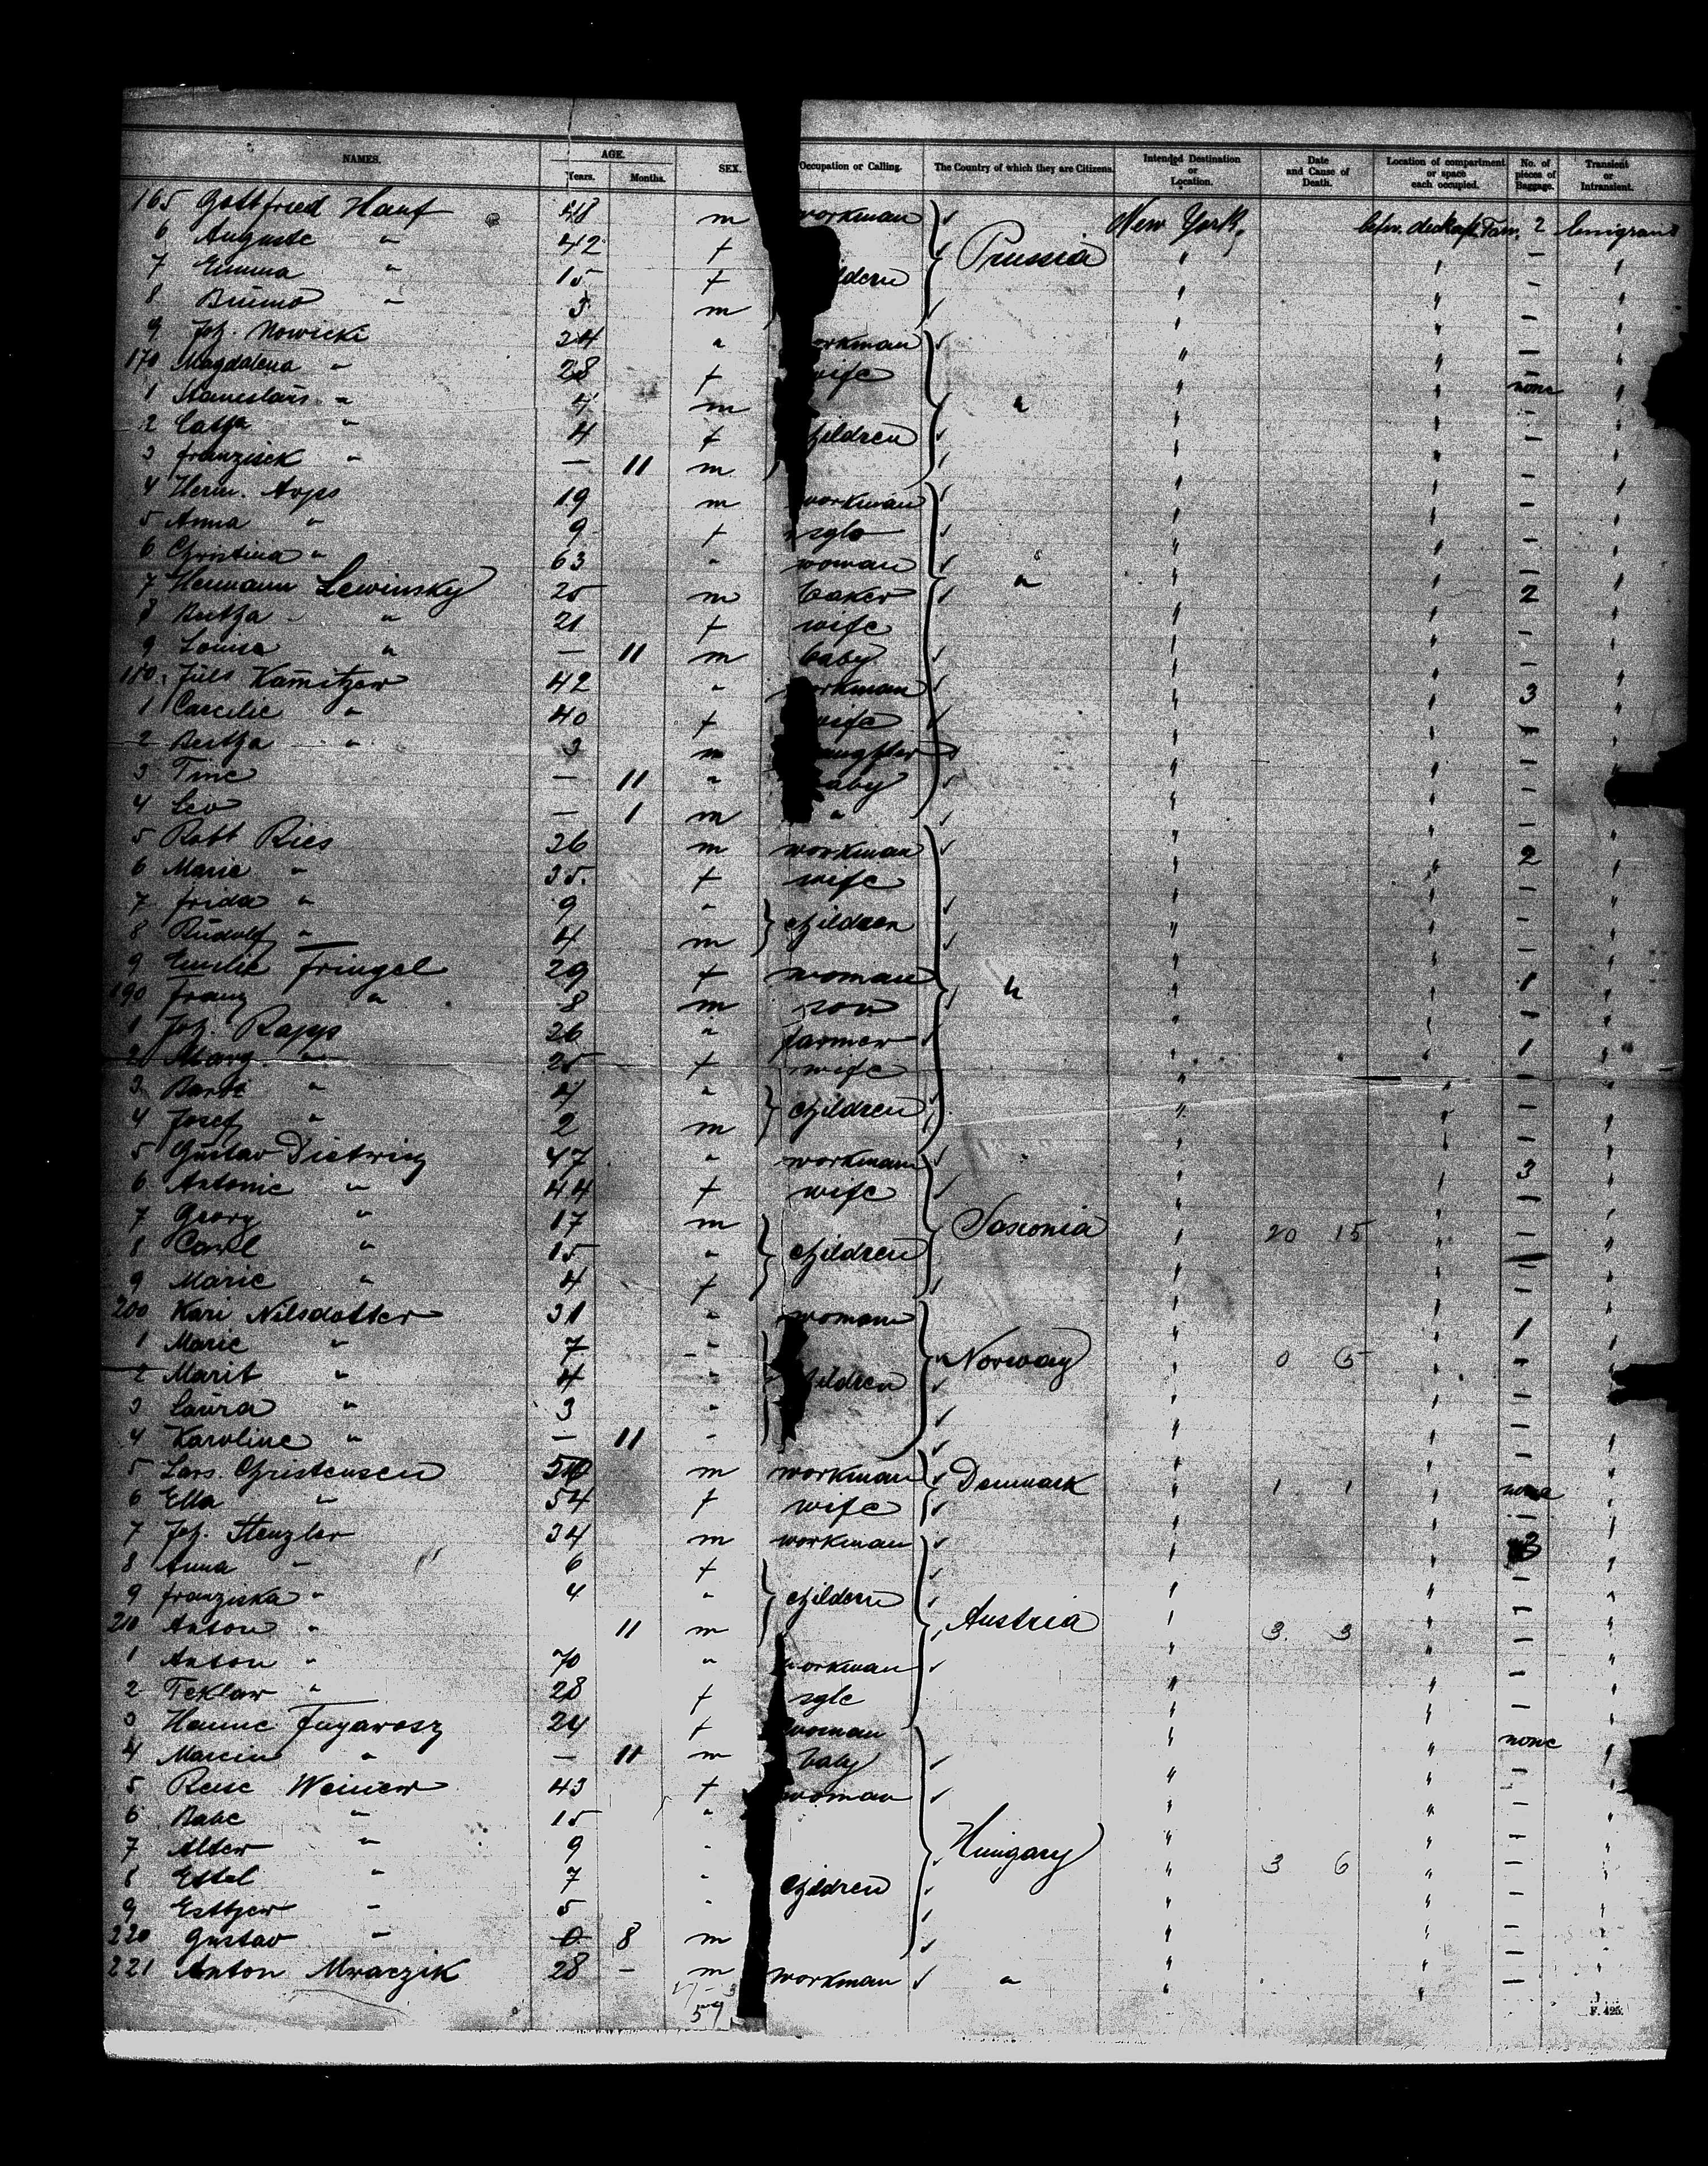 NAMES. AGE. Years. Months. SEX. Occupation or Calling. The Country of which they are Citizens. Intended Destination or Location. Date and Cause of Death. Location of compartment or space each occupied. No. of pieces of Baggage. Transient or Intransient.
165 Gottfried Hauf 48 m workman New York, 2
6 Auguste " 42 f Prussia " " – "
7 Emma " 15 f ldern " " – "
8 Bruno " 3 m " " – "
9 Joh. Nowicki 24 " orkman " " – "
170 Magdalena " 28 f wife " " none "
1 Stanislaus " 4 m " " " – "
2 Catha " 4 f children " " – "
3 Franzisek " – 11 m " " – "
4 Herm. Arps 19 m workman " " – "
5 Anna " 9 f sgls " " – "
6 Christina " 63 " woman " " " – "
7 Hermann Lewinsky 25 m baker " " 2 "
8 Bertha " 21 f wife " " – "
9 Louisa " – 11 m baby " " – "
180 Juls Kamitzer 42 " orkman " " 3 "
1 Caecilie " 40 f wife " " – "
2 Bertha " 3 m aughter " " – "
3 Tine – 11 " aby " " –
4 Leo – 1 m " " " – "
5 Robt Ries 36 m workman " " 2 "
6 Marie " 35 f wife " " – "
7 Frida " 9 " children " " – "
8 Rudolf " 4 m " " – "
9 Emilie Fringel 29 f woman " " " 1 "
190 Franz " 8 m son " " – "
1 Joh. Rapps 26 " farmer " " 1 "
2 Marg. " 25 f wife " " – "
3 Barb. " 4 " children " " – "
4 Josef " 2 m " " – "
5 Gustav Dietwig 47 " workman " " 3 "
6 Antonie " 44 f wife " " – "
7 Georg " 17 m Saxonia " 20 15 " – "
8 Carl " 15 " children " " – "
9 Marie " 4 f " " – "
200 Kari Nilsdotter 31 " woman " " 1 "
1 Marie " 7 " Norway " 0 5 " – "
2 Marit " 4 " ildren " " –
3 Laura " 3 " " " – "
4 Karoline " – 11 " " " – "
5 Lars Christensen 50 m workman Denmark " 1 1 " none "
6 Ella " 54 f wife " " – "
7 Joh. Stenzler 34 m workman " " 3 "
8 Anna " 6 f " " – "
9 Franziska " 4 " children " " – "
210 Anton " 11 m Austria " 3. 3 " – "
1 Anton " 70 " workman " " – "
2 Teklaw " 28 f sgle " " – "
3 Hanne Fugarosz 24 f woman " " none "
4 Marcin " – 11 m baby " " – "
5 Rese Weiner 43 f woman " " – "
6 Babe " 15 " " " – "
7 Alter " 9 " Hungary " " – "
8 Ettel " 7 " children " 3 6 " – "
9 Esther " 5 " " " – "
220 Gustav " 0 8 m " " – "
221 Anton Mraczik 28 – m workman " " " – "
59
F. 425.